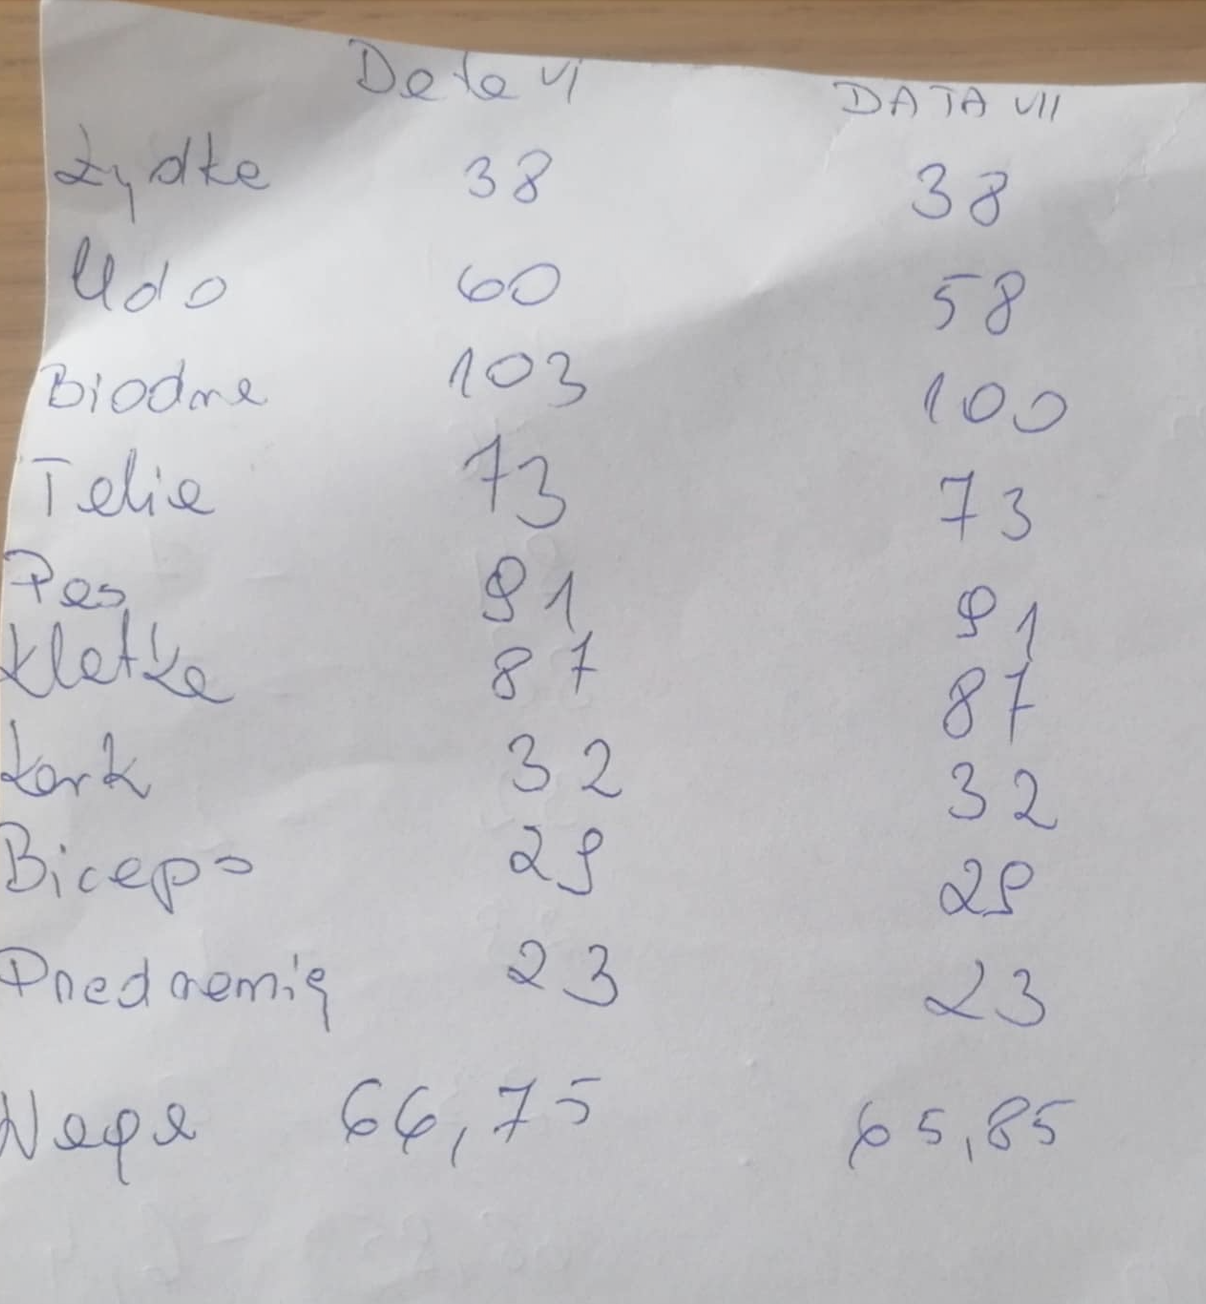 Data VI DATA VII
Łydka 38 38
Udo 60 58
Biodra 103 100
Talia 73 73
Pas 91 91
Klatka 87 87
Kark 32 32
Biceps 29 29
Przedramię 23 23
Waga 66,75 65,85